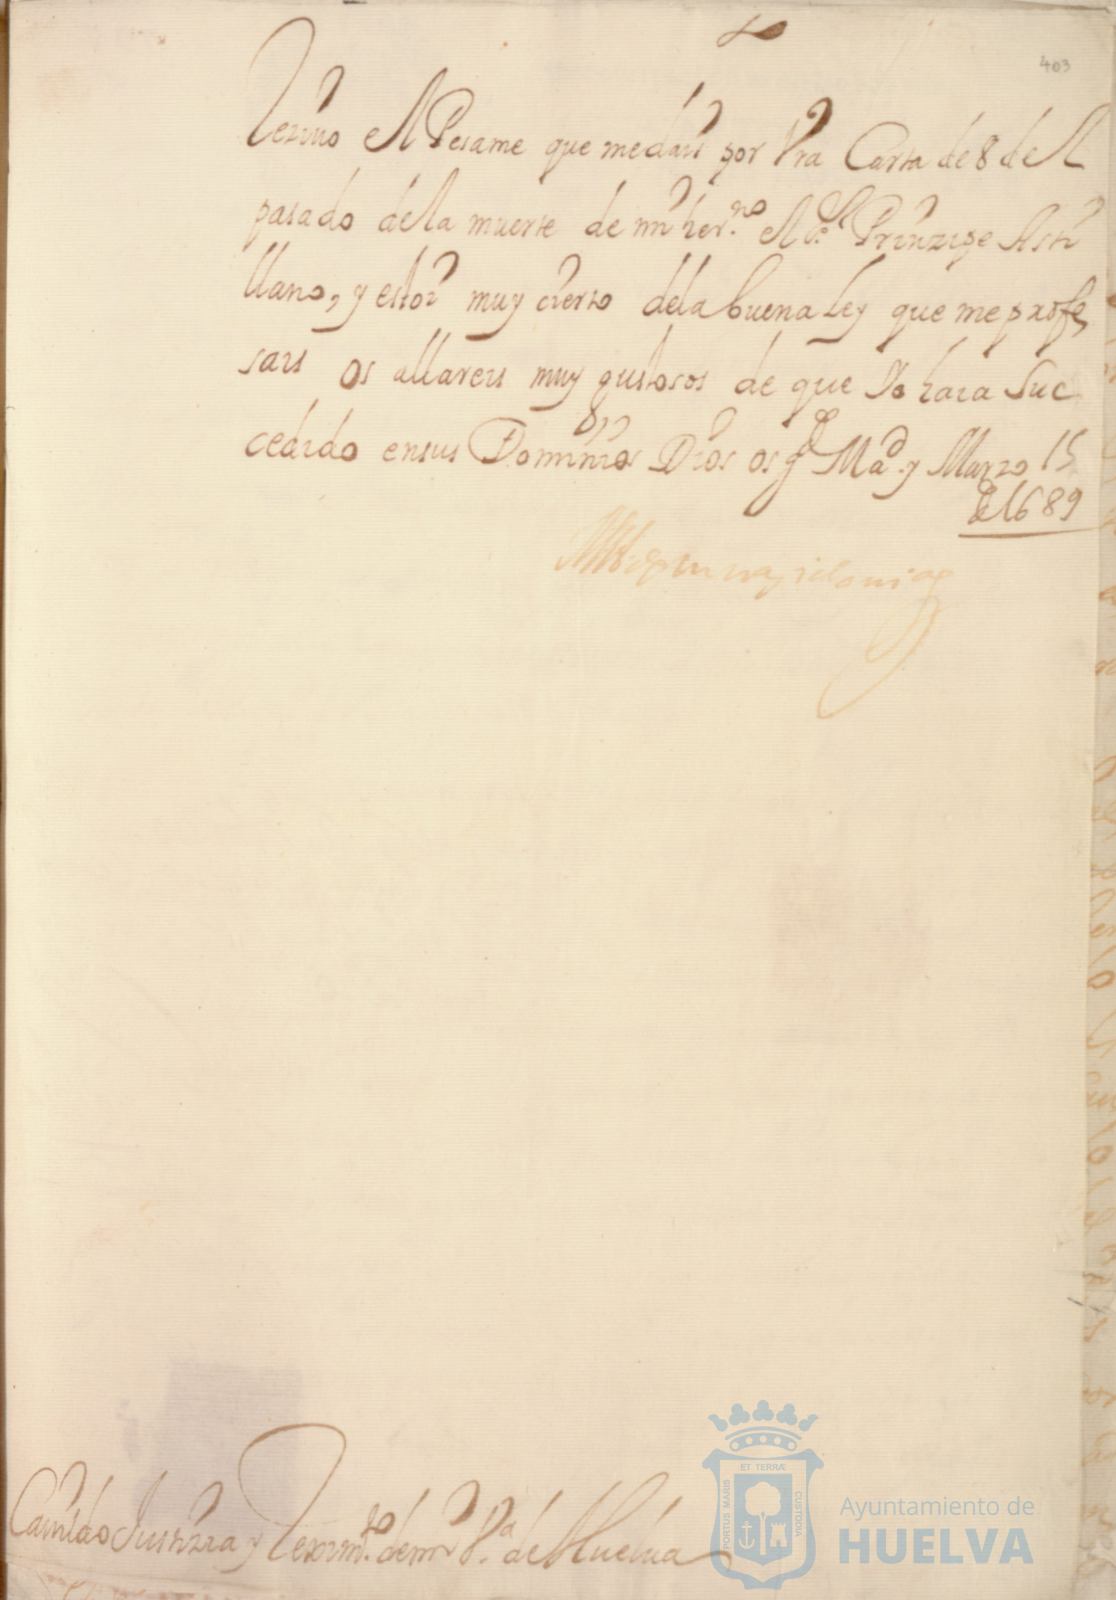 403
Rezivo el Pesame que me dais por Vra Carta de 8 del
pasado de la muerte de mi her.no el S.r Prinzipe Asti
llano, y estoi muy cierto dela buena Ley que me profe
sais os allareis muy gustosos de que Yo haia suc
cedido en sus Dominios Dios os g.e Mad. y Marzo 15
de 1689
Cavildo Justizia y Reximto. de mi V.a de Huelva
PORTUS MARIS ET TERRÆ CUSTODIA
Ayuntamiento de
HUELVA